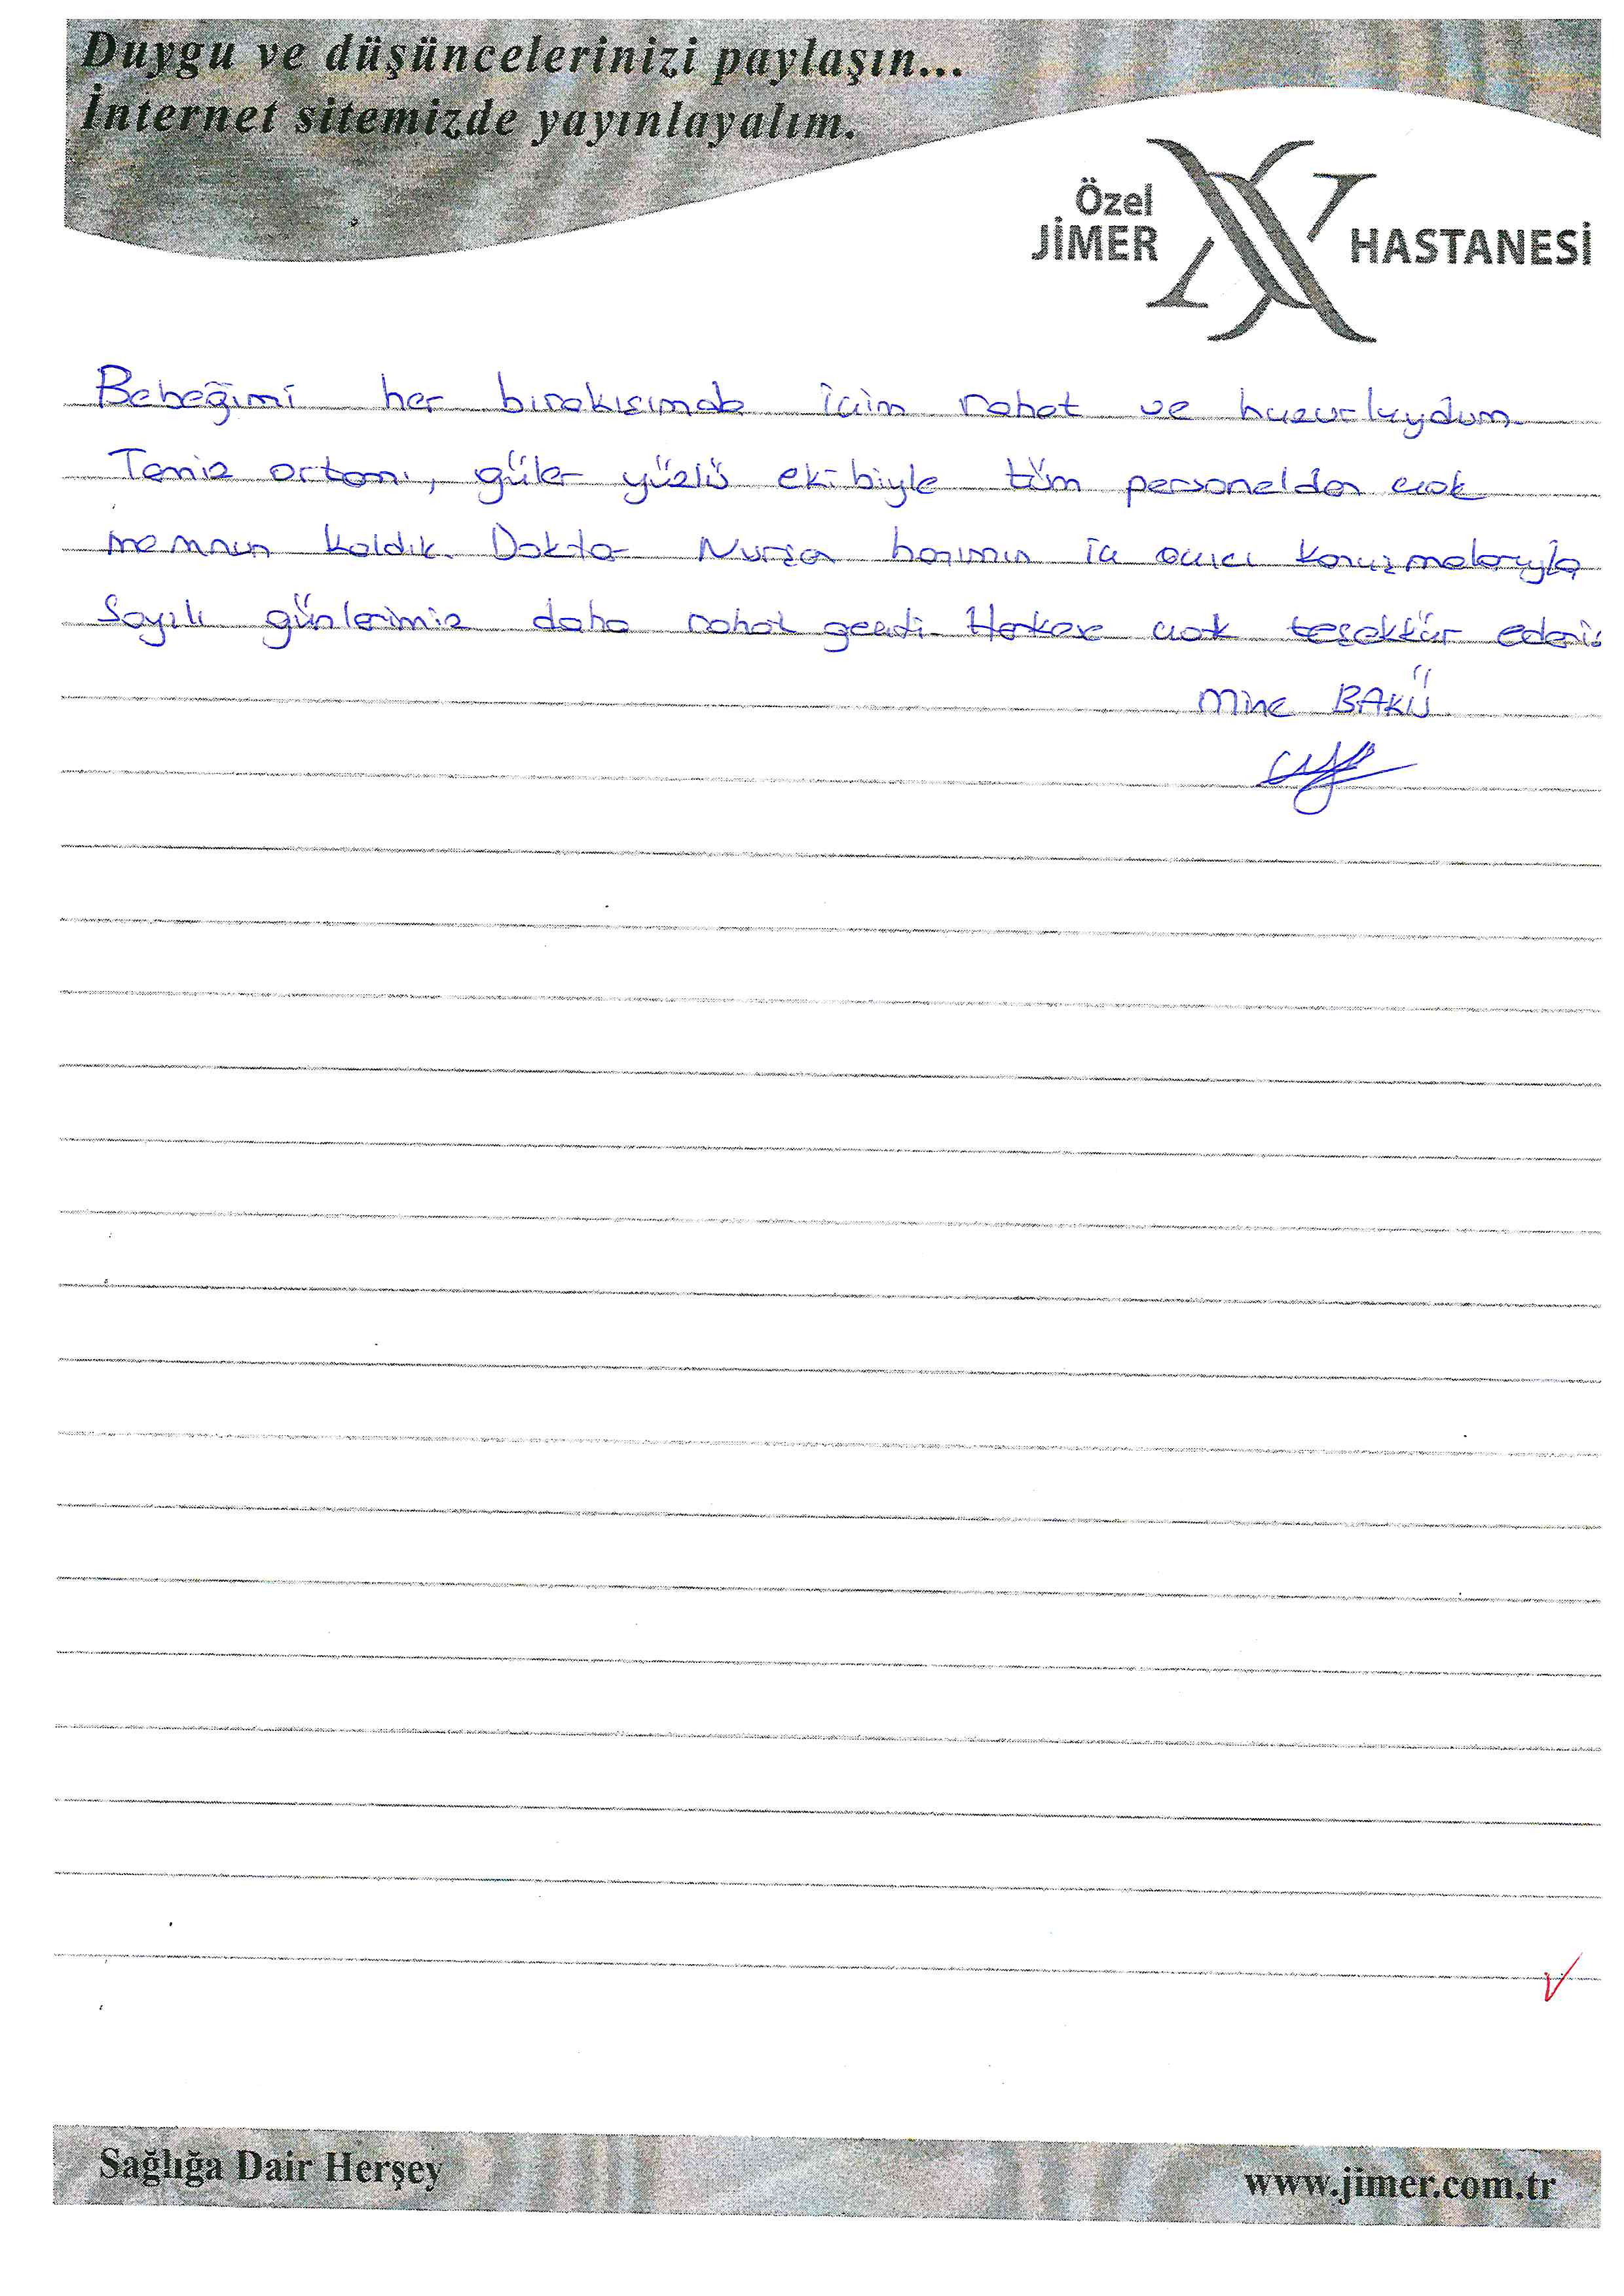 Duygu ve düşüncelerinizi paylaşın...
İnternet sitemizde yayınlayalım.
Özel
JİMER HASTANESİ
Bebeğimi her bırakışımda içim rahat ve huzurluydum.
Temiz ortamı, güler yüzlü ekibiyle tüm personelden çok
memnun kaldık. Doktor Nurşen hanımın iç açıcı konuşmalarıyla
Sayılı günlerimiz daha rahat geçti. Herkese çok teşekkür ederiz
Mine BAKÜ
Sağlığa Dair Herşey
www.jimer.com.tr